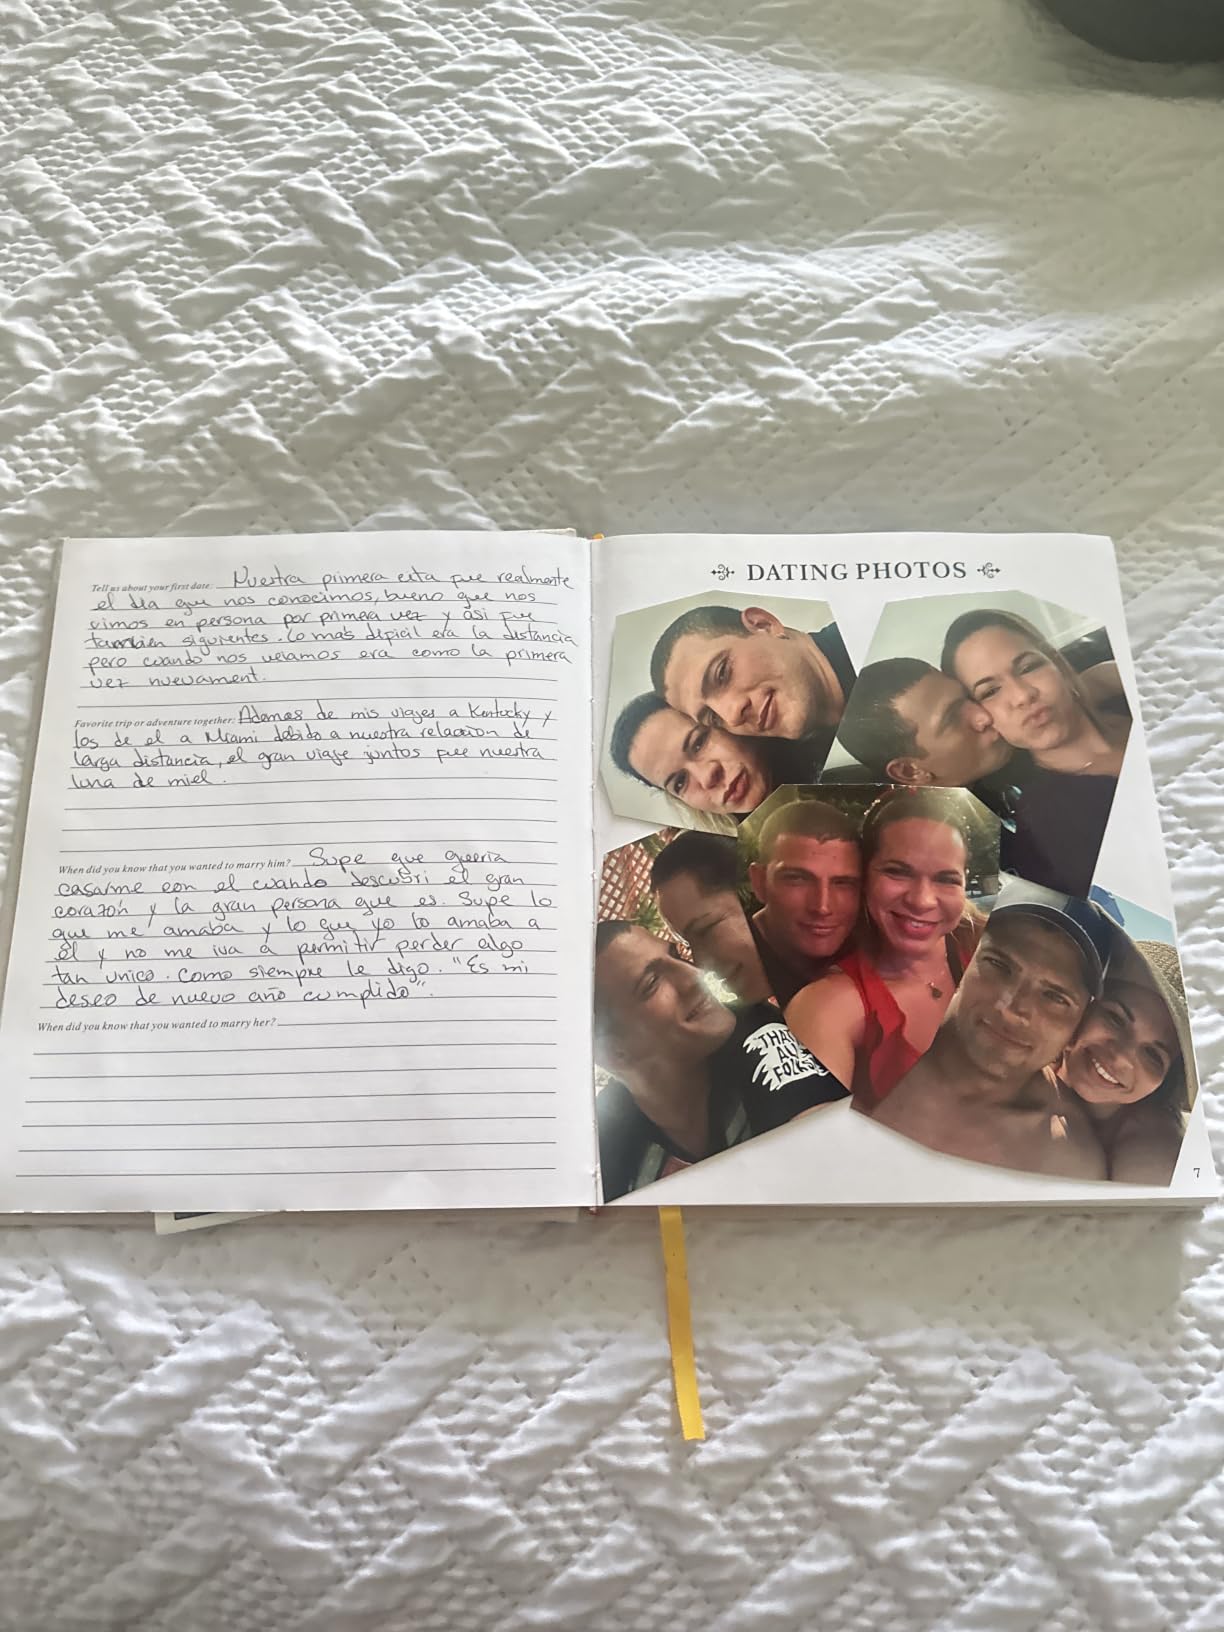 Tell us about your first date: Nuestra primera cita fue realmente
el dia que nos conocimos, bueno que nos
vimos en persona por primera vez y asi fue
tambien siguientes. Lo mas dificil era la distancia
pero cuando nos veiamos era como la primera
vez nuevament.
Favorite trip or adventure together: Ademas de mis viajes a Kentucky y
los de el a Miami debido a nuestra relacion de
larga distancia, el gran viaje juntos fue nuestra
luna de miel.
When did you know that you wanted to marry him? Supe que queria
casarme con el cuando descubri el gran
corazón y la gran persona que es. Supe lo
que me amaba y lo que yo lo amaba a
él y no me iva a permitir perder algo
tan unico. Como siempre le digo. "Es mi
deseo de nuevo año cumplido".
When did you know that you wanted to marry her?
DATING PHOTOS
THAT
FOLKS
7